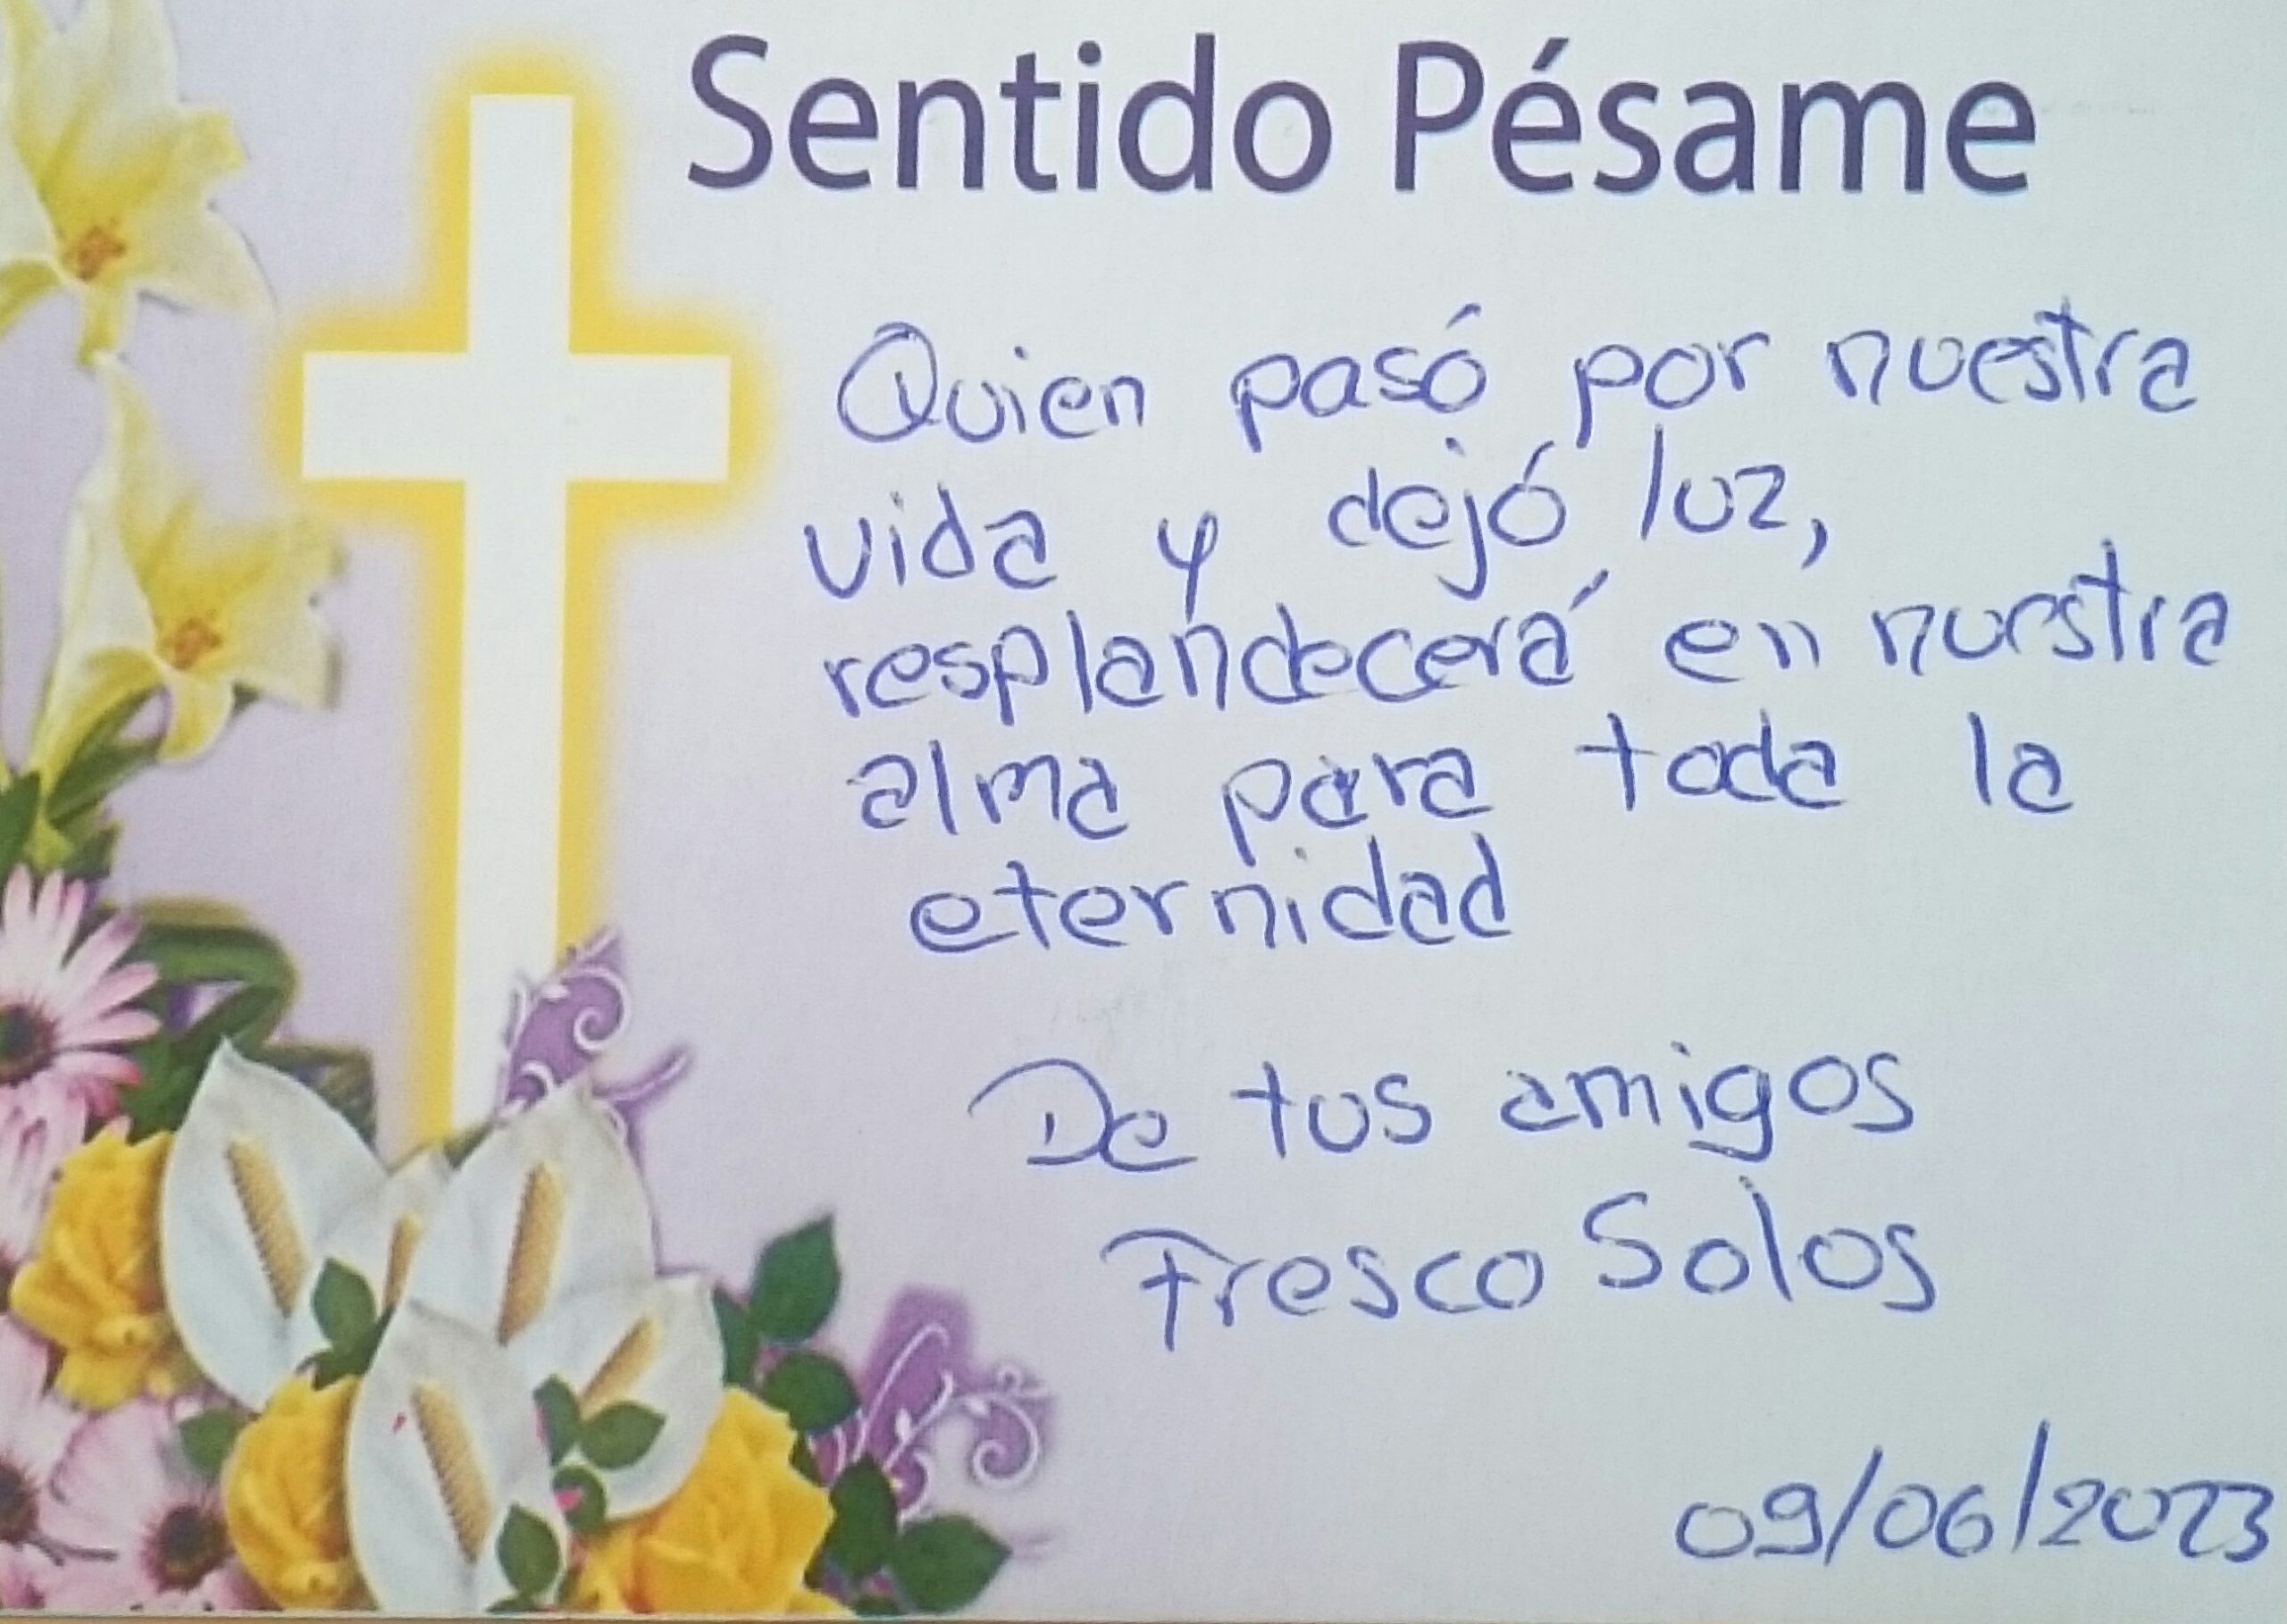 Sentido Pésame
Quien pasó por nuestra
vida y dejó luz,
resplandecerá en nuestra
alma para toda la
eternidad
De tus amigos
Fresco Solos
09/06/2023